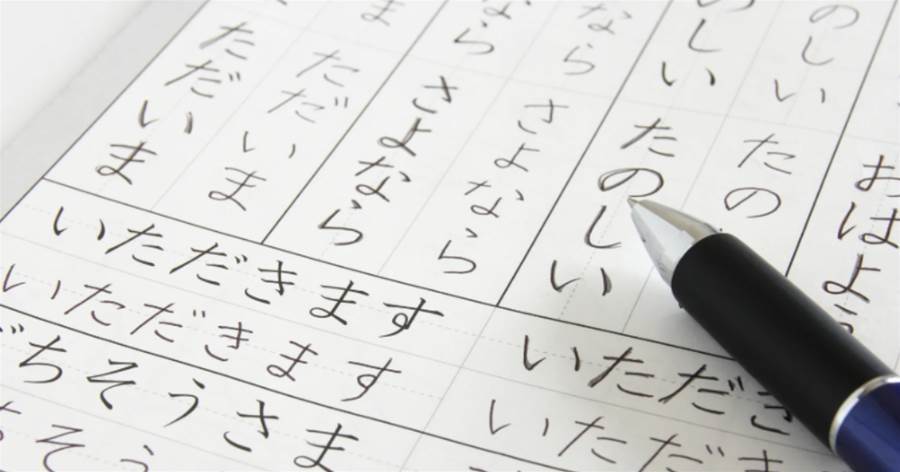 おはよ
のしい たの
のしい たのしい
なら さよなら
なら さよなら
ま ただいま
ただいま
いただきます
いただきます
ちそうさま
そう
いただき
いただき